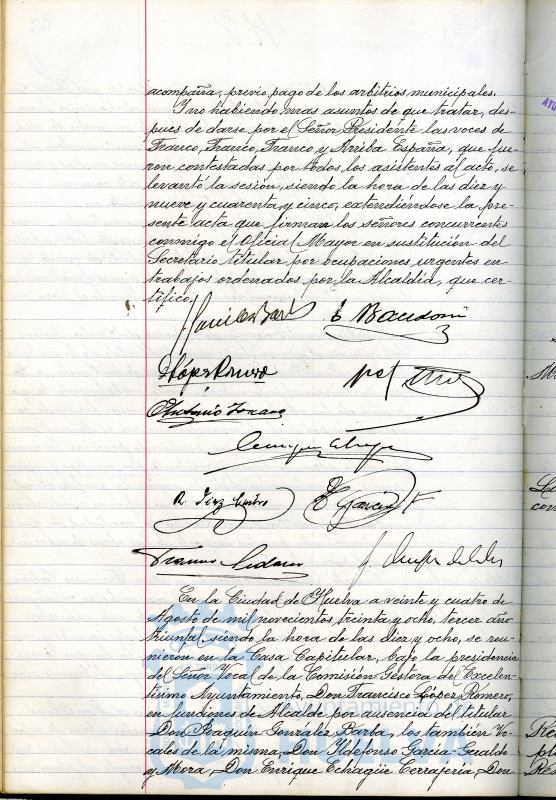 acompaña, previo pago de los arbitrios municipales.
Y no habiendo mas asuntos de que tratar, des-
pues de darse por el Señor Presidente las voces de
Franco, Franco, Franco y Arriba España, que fue-
ron contestadas por todos los asistentes al acto, se
levantó la sesión, siendo la hora de las diez y
nueve y cuarenta y cinco, extendiéndose la pre-
sente acta que firman los señores concurrentes
conmigo el Oficial Mayor en sustitución del
Secretario titular por ocupaciones urgentes en
trabajos ordenados por la Alcaldía, que cer-
tifico.
López Romero
Antonio
E García F
En la Ciudad de Huelva a veinte y cuatro de
Agosto de mil novecientos treinta y ocho, tercer año
triunfal, siendo la hora de las diez y ocho, se reu-
nieron en la Casa Capitular, bajo la presidencia
del Señor Vocal de la Comisión Gestora del Excelen-
tísimo Ayuntamiento, Don Francisco López Romero,
en funciones de Alcalde por ausencia del titular
Don Joaquín González Barba, los tambien Vo-
cales de la misma, Don Ildefonso García-Geraldo
y Mora, Don Enrique Echagüe Cerrajería, Don